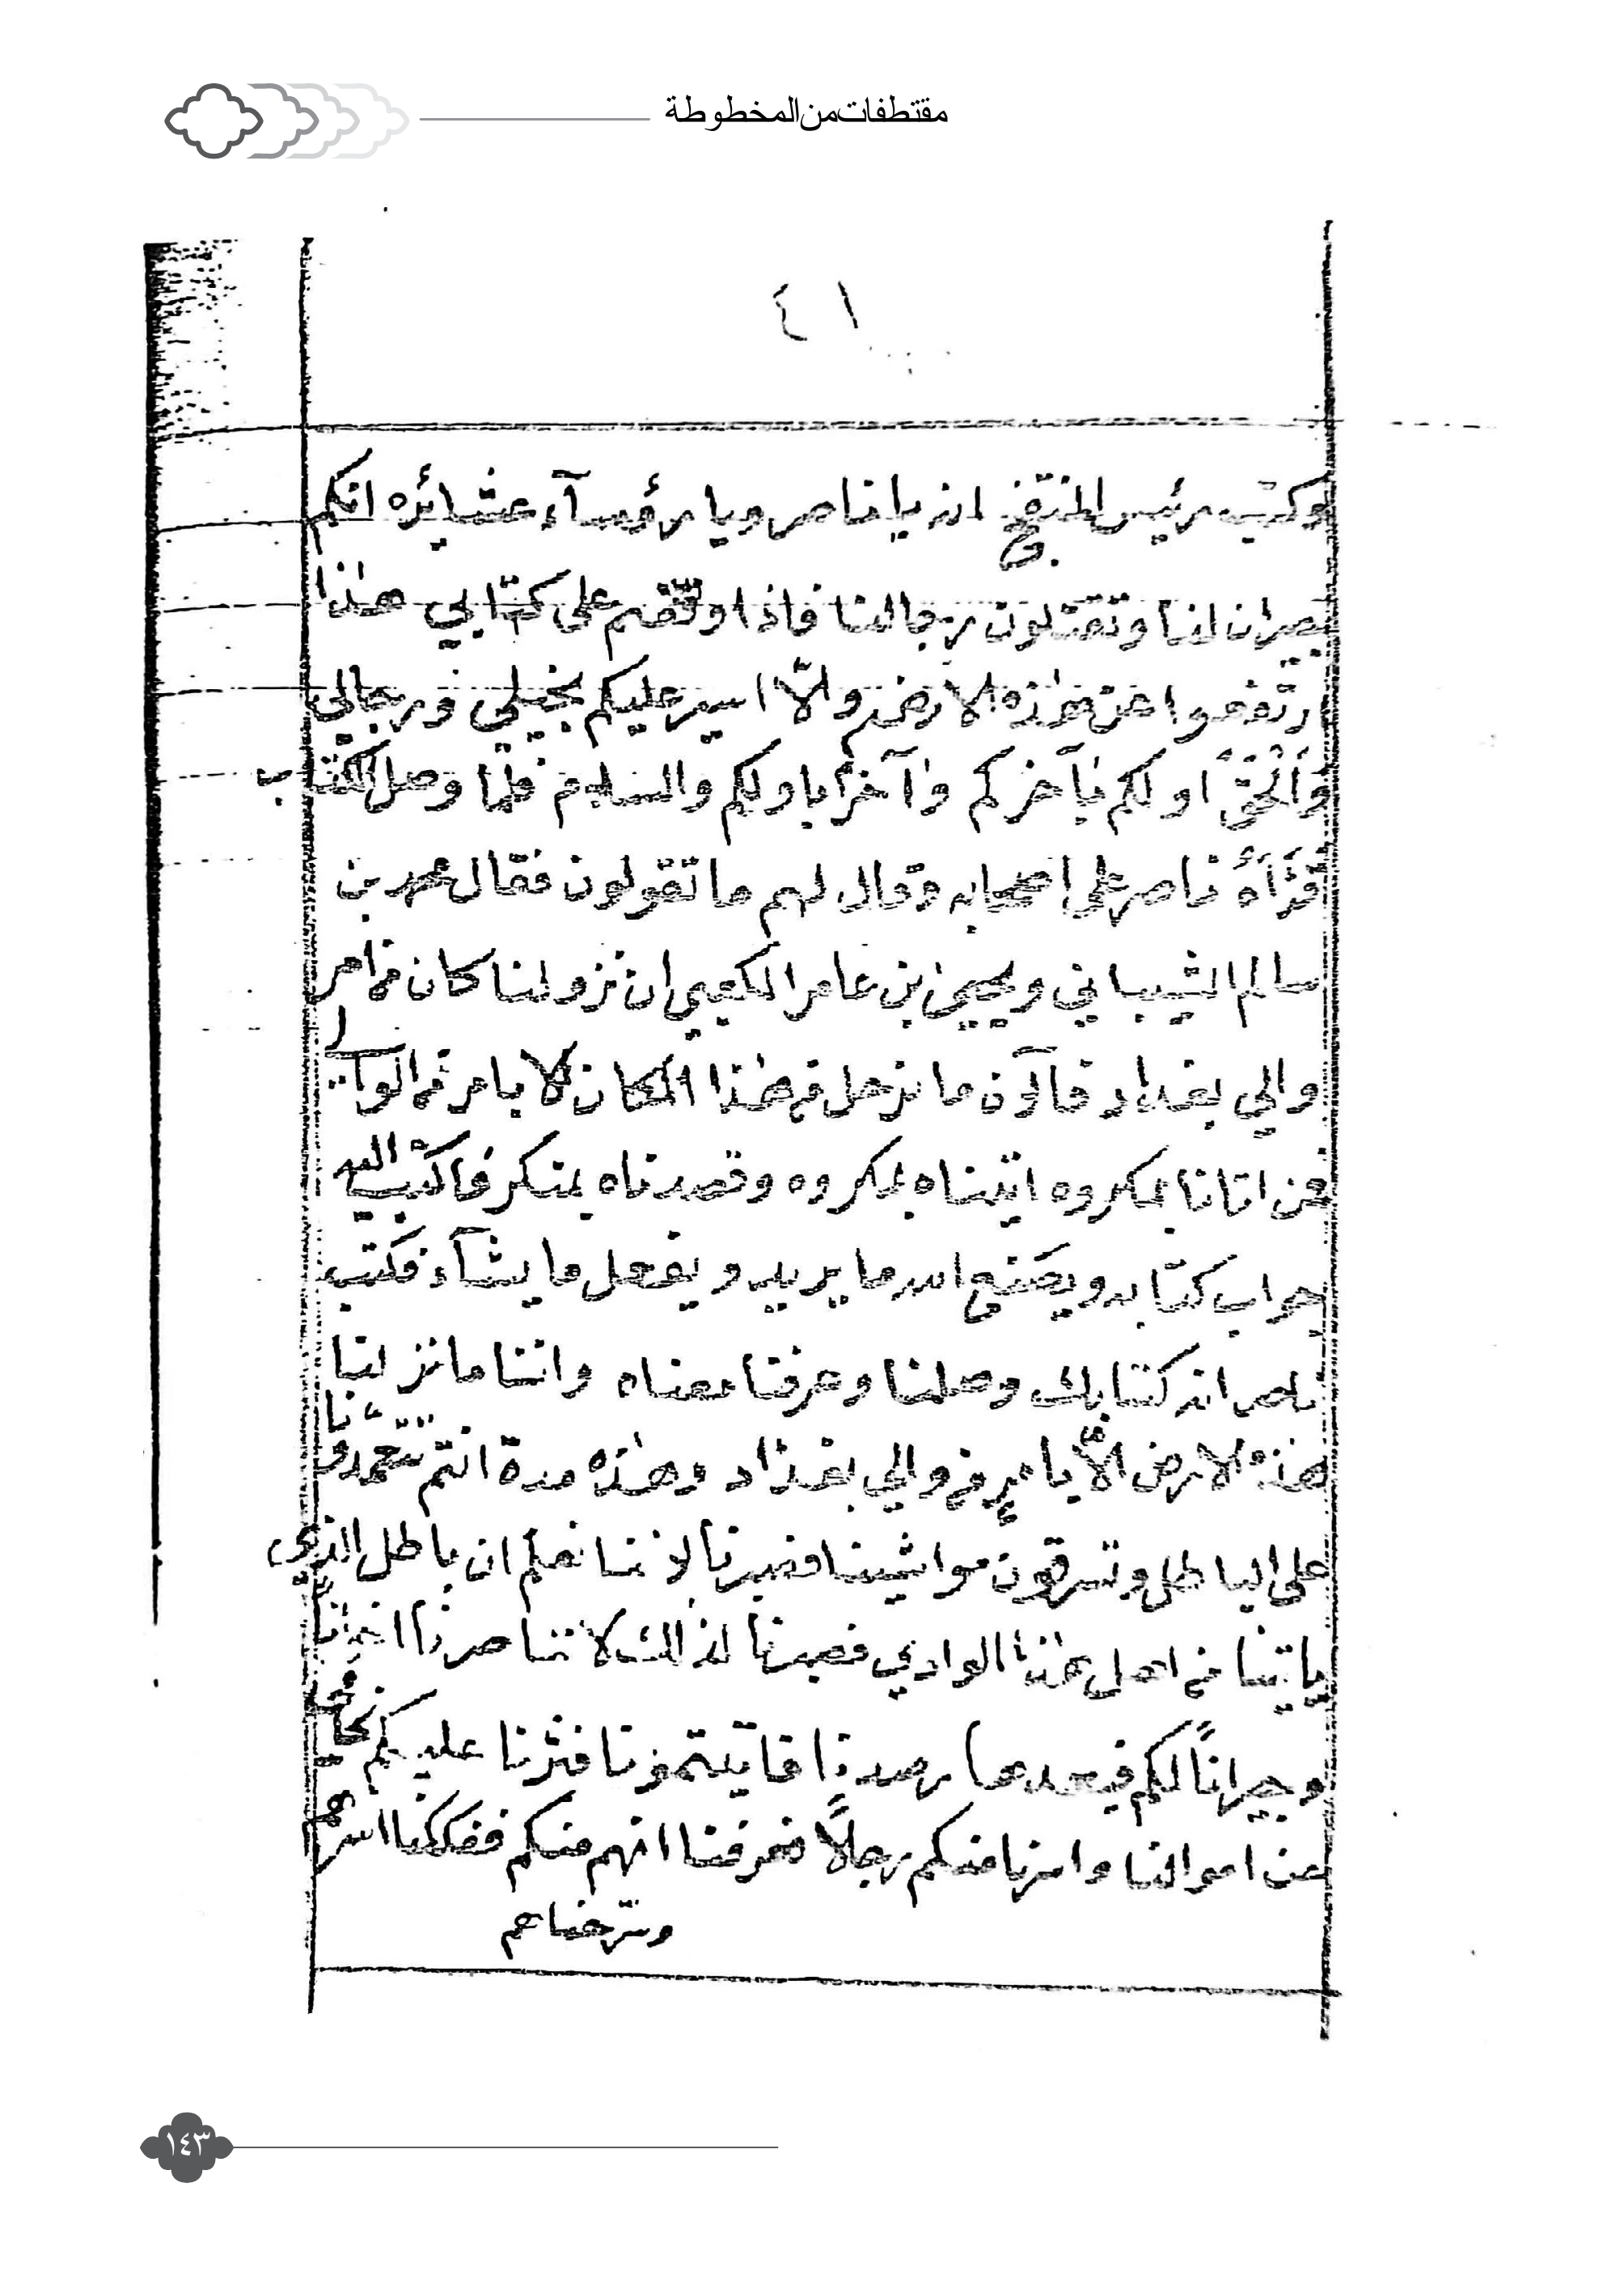 مقتطفات من المخطوطة
٤١
وكتب رئيس المنتفج انه يا ناصر ويا رؤسآء عشائره انكم
جيران لنا وتقتلون رجالنا فاذا وقفتم على كتابي هذا
ارتفعوا عن هذه الارض والّا اسير عليكم بخيلي ورجالي
وَاُلْحَقُ اولكم بآخركم وآخركم باولكم والسلام فلمّا وصل الكتاب
قرَأهُ ناصر على اصحابه وقال لهم ما تقولون فقال محمد بن
سالم الشيباني ويحيى بن عامر الكعبي ان نزولنا كان من امر
والي بغداد فالآن ما نرحل من هذا المكان الا بامر من الوالي
فمن اتانا بمكروه اتيناه بمكروه وقصدناه بمنكر فاكتب اليه
جواب كتابه ويصنع الله ما يريد ويفعل ما يشآء فكتب
ناصر انه كتابك وصلنا وعرفنا معناه واننا ما نزلنا
هذه الارض الّا بامرٍ من والي بغداد وهذه مدة انتم تتعمدونا
على الباطل وتسرقون مواشينا فصبرنا لاننا نعلم ان باطل الذي
ياتينا من اهل هذا الوادي فصبرنا لذالك لاننا صرنا
وجيرانًا لكم فبعدها فاتيتمونا فثرنا عليكم
عن اموالنا واسرنا منكم رجالًا فعرفنا انهم منكم ففككنا اسرهم
وسرحناهم
١٤٣